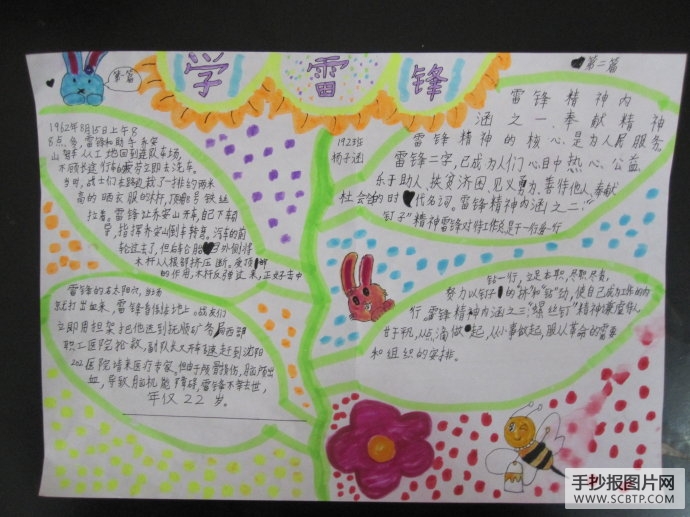 学雷锋
第一篇
1962年8月15日上午8
8点多,雷锋和助手乔安
山驾车从工地回到连队车场,
不顾长途行车的疲劳立即去洗车。
当时,战士们去路边栽了一排约两米
高的晒衣服的木杆,顶 铁丝
拉着。雷锋让乔安山开车,自己下车
指挥乔安山倒车转弯。汽车的前
轮过去了,但后轮胎 外侧将
木杆从根部挤压断。受顶
的作用,木杆反弹过来,正好击中
雷锋的右太阳穴,当场
就打出血来,雷锋昏倒在地上。战友们
立即用担架把他送到抚顺矿务局西部
职工医院抢救,副队长又开车赶到沈阳
202医院请来医疗专家。但由于颅骨损伤,脑内出
血,导致脑机能障碍,雷锋不幸去世,
年仅22岁。
142班
杨子涵
第二篇
雷锋精神内
涵之一、奉献精神
雷锋精神的核心,是为人民服务,
雷锋二字,已成为人们心目中热心公益、
乐于助人、扶贫济困、见义勇为、善待他人、奉献
社会的时代名词。雷锋精神内涵之二:“
钉子”精神雷锋对待工作总是干一行爱一行
钻一行,立足本职,尽职尽责。
努力以钉子的“挤”和“钻”劲,使自己成为工作的内
行,雷锋精神内涵之三:“螺丝钉”精神兼虚待人
甘于平凡,从点滴做起,从小事做起,服从革命的需要
和组织的安排。
手抄报图片网
WWW.SCBTP.COM